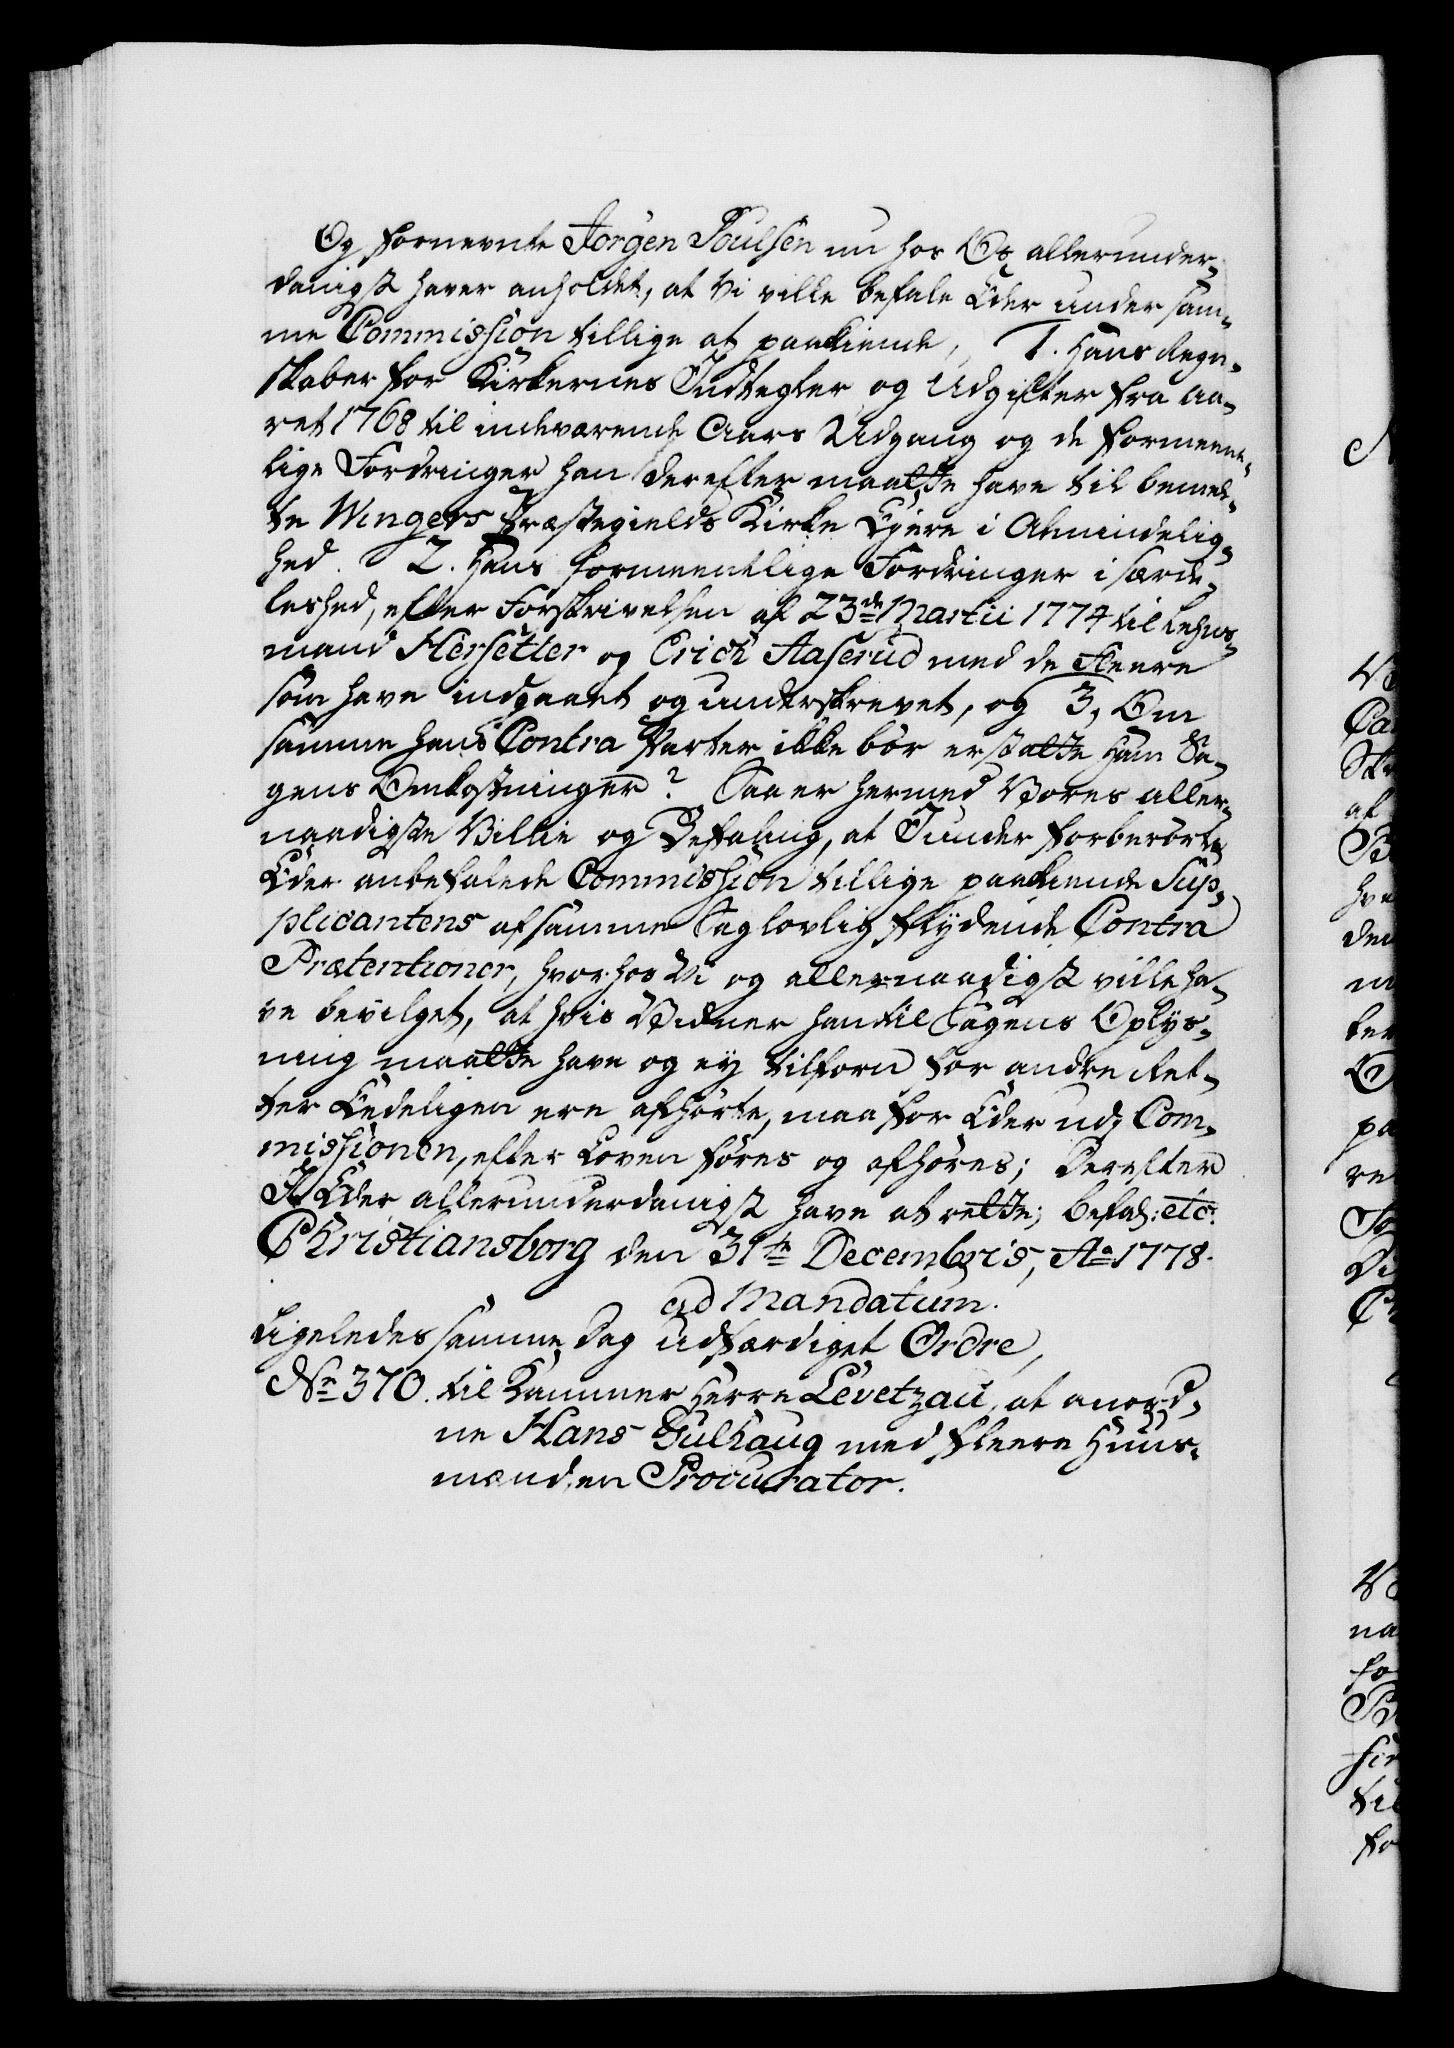 Og fornevnte Jorgen Poulsen nu hos Os allerunder,
danigst haver anholdet, at Vi ville befale Eder under sam,
me Commission tillige at paakiende, 1. Hans Regn,
skaber for Kirkernes Indtegter og Udgifter fra Aa,
ret 1768 til indeværende Aars Udgang og de formeent,
lige Fordringer han derefter maatte have til bemel,
te Wingers Præstegields Kirke Ejere i Almindelig,
hed. 2. Hans formeentlige Fordringer i særde,
leshed, efter Forskrivelsen af 23de Martii 1774 til Lehns,
mand Hersetter og Erich Aaserud med de fleere
som have indgaaet og underskrevet, og 3, Om
samme hans Contra Parter ikke bör erstatte ham Sa,
gens Omkostninger? Saa er hermed Vores aller,
naadigste Villie og Befaling, at I under forberörte
Eder anbefalede Commission tillige paakiende Sup,
plicantens af samme Sag lovlig flydende Contra
Prætentioner, hvorhos Vi og allernaadigst ville ha,
ve bevilget, at hvis Vidner han til Sagens Oplys,
ning maatte have og ey tilforn for andre Ret,
ter Eedeligen ere afhörte, maa for Eder ud, Com,
missionen, efter Loven föres og afhöres; Derefter
I Eder allerunderdanigst have at rette; befal: etc.
Christiansborg den 31te Decembris, Ao 1778.
ad Mandatum.
Ligeledes samme Dag udfærdiget Ordre,
No 370. til Kammer Herre Levetzau, at anord,
ne Hans Gulhaug med fleere Huus,
mænd, en Procurator.